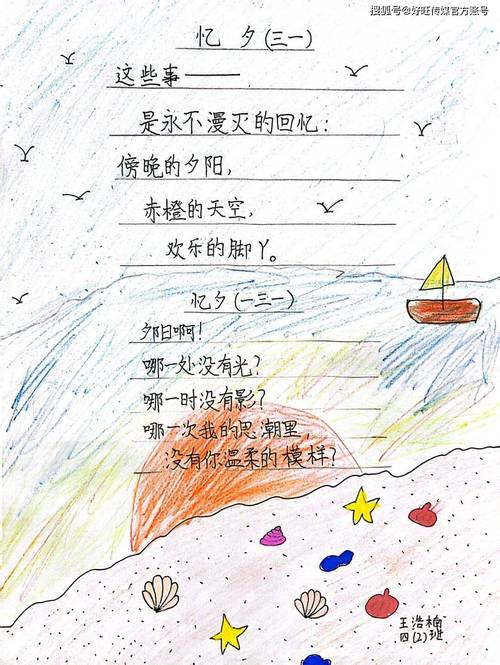 搜狐号@好旺传媒官方账号
忆夕(三一)
这些事——
是永不漫灭的回忆:
傍晚的夕阳,
赤橙的天空,
欢乐的脚丫。
忆夕(一三一)
夕日啊!
哪一处没有光?
哪一时没有影?
哪一次我的思潮里,
没有你温柔的模样?
王浩楠
四(2)班